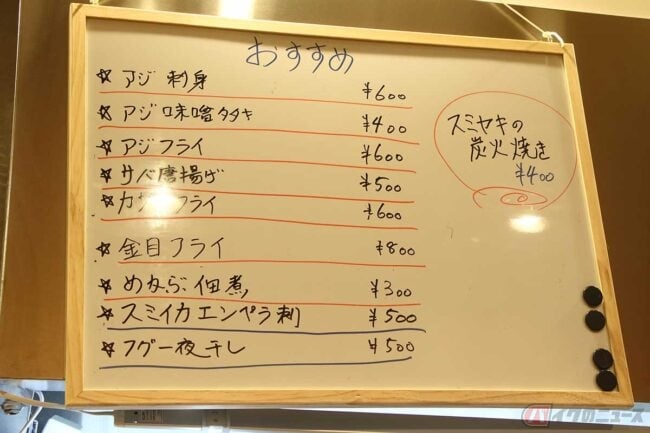 おすすめ
☆ アジ 刺身 ¥600
☆ アジ 味噌タタキ ¥400
☆ アジフライ ¥600
☆ サバ唐揚げ ¥500
☆ フライ ¥600
☆ 金目フライ ¥800
☆ 佃煮 ¥300
☆ スミイカエンペラ刺 ¥500
☆ フグ一夜干し ¥500
スミヤキの
炭火焼き
¥400
バイクのニュース